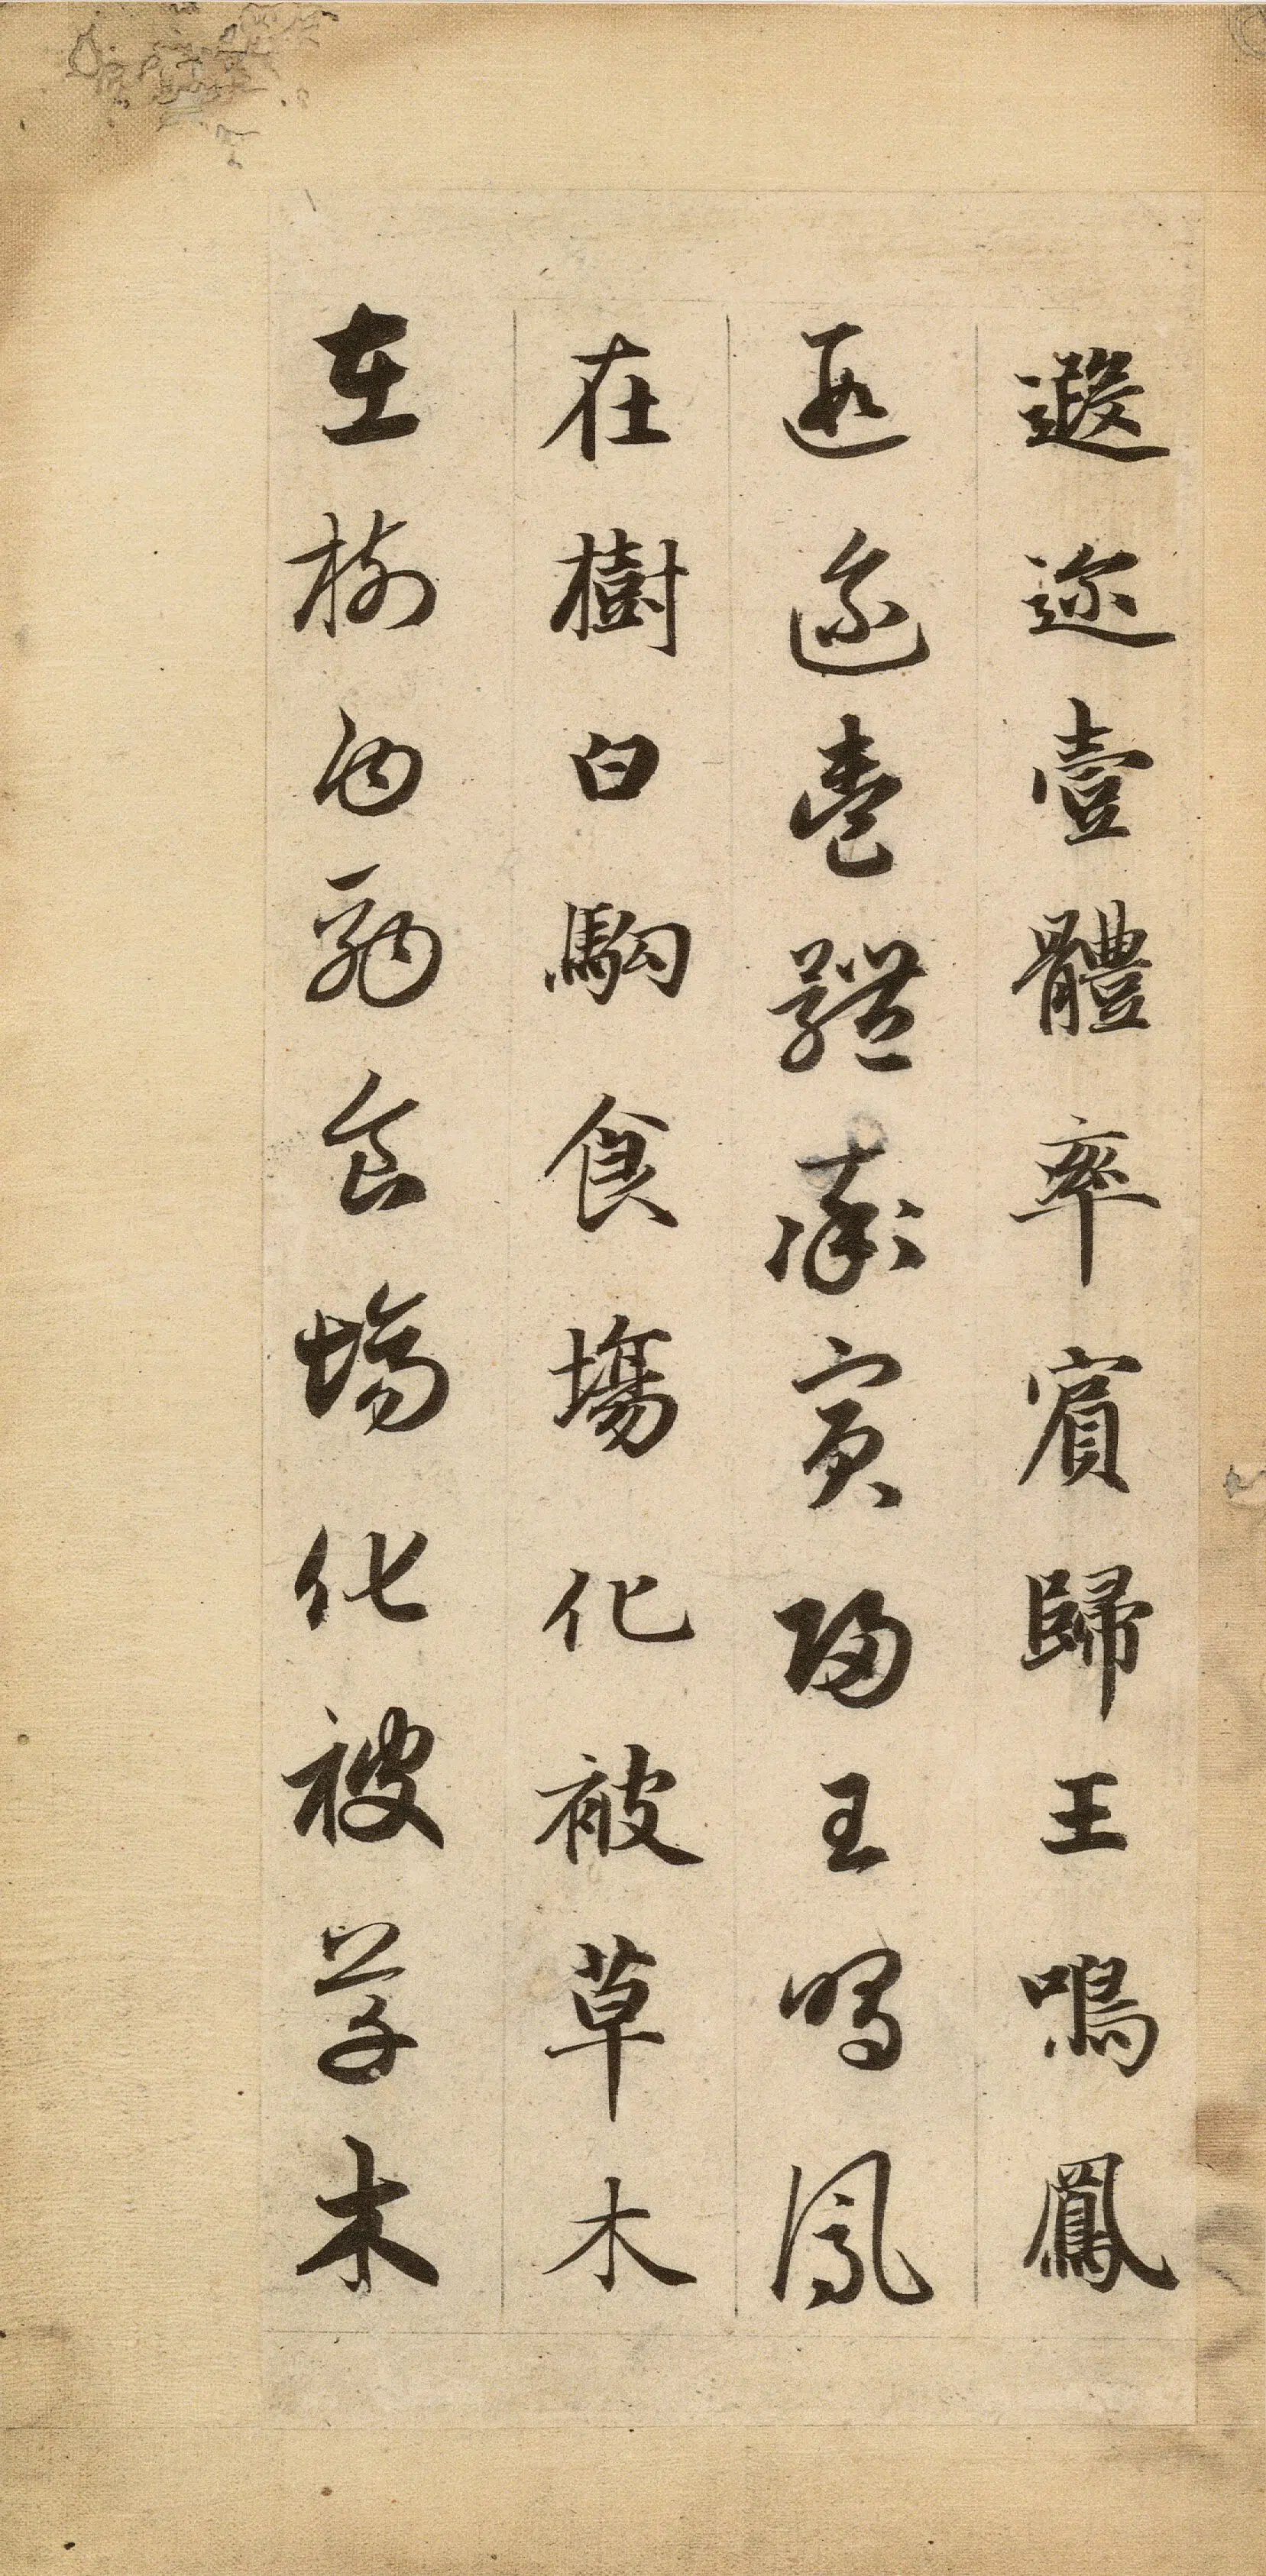 遐迩壹體率賓歸王鳴鳳
遐迩壹體率賓歸王鳴鳳
在樹白駒食塲化被草木
在樹白駒食塲化被草木